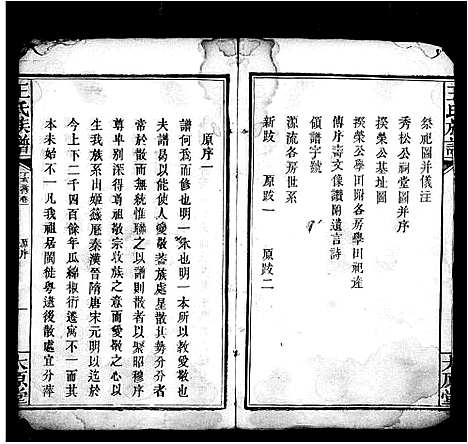 王氏族譜
祭祀圖并儀注
秀松公祠堂圖并序
揆榮公基址圖
揆榮公學田附各房學田祀達
傳序壽文像讚附遺言詩
領譜字號
源流各房世系
新跋　原跋一　原跋二
太原堂
原序一
譜何為而修也明一本也明一本所以使人愛敬也
夫譜之所以能使人愛敬者
常於散而無統惟聯之以譜則散者以聚昭穆序
尊卑別深得尊祖敬宗收族之意而愛敬之心以
生我族系出姬籙歷秦漢晉隋唐宋元明以迄於
今上下二千四百餘年瓜綿椒衍遷寓不一
本始不一凡我祖居閩徙粵遠後散處宜分萍
王氏族譜
原序
一
太原堂